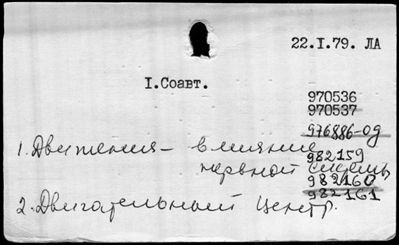 22.I.79. ЛА
I.Соавт.
970536
970537
976886-од
1. Движения - влияние
982159
нервной системы
982160
982161
2. Двигательный центр.